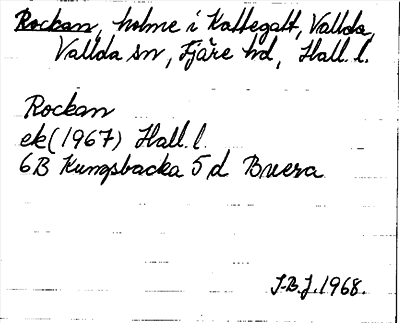 Rockan, holme i Kattegatt, Vallda,
Vallda sn, Fjäre hd, Hall. l.
Rockan
ek (1967) Hall. l.
6B Kungsbacka 5 d Buera
J.B.J. 1968.